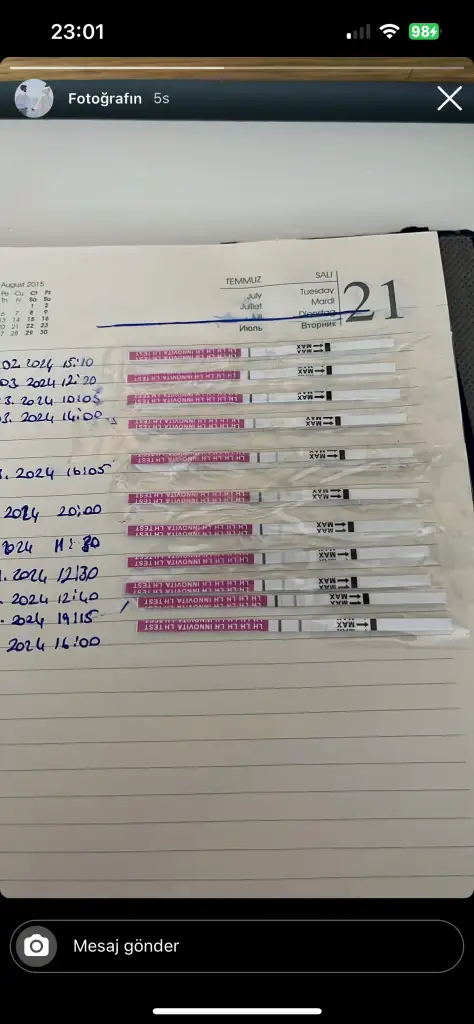 23:01
98
Fotoğrafın 5s
August 2015
Pe Cu Ct Pz
Th Fr Sa Su
1 2
6 7 8 9
13 14 15 16
20 21 22 23
29 30
TEMMUZ SALI
July Tuesday
Juillet Mardi
Dienstag
Июль Вторник
21
02.2024 15:10
03.2024 12:20
3.2024 10:05
3.2024 14:00
2024 16:05
2024 20:00
2024
2024 12:30
2024 12:40
2024 19:15
2024 16:00
LH LH LH LH INNOVITA LH TEST
MAX
Mesaj gönder